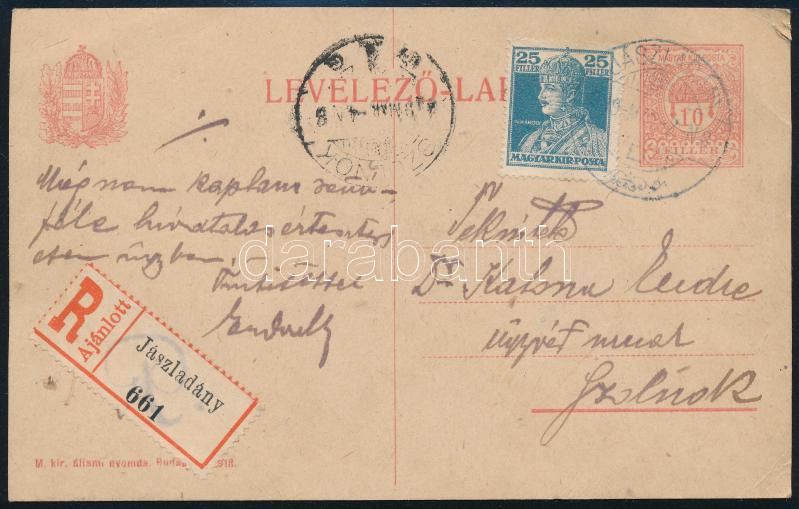 LEVELEZŐ-LAP
25 FILLÉR 25 FILLÉR
MAGYAR KIR. POSTA
MAGYAR KIR. POSTA
10
FILLÉR
Még nem kaptam semmi-
féle hivatalos értesítést
ezen ügyben
Tisztelettel
Tekintetes
Dr Kálmán Endre
ügyvéd urnak
Szolnok
R
Ajánlott
Jászladány
661
M. kir. állami nyomda. Budapest 1918.
darabanth